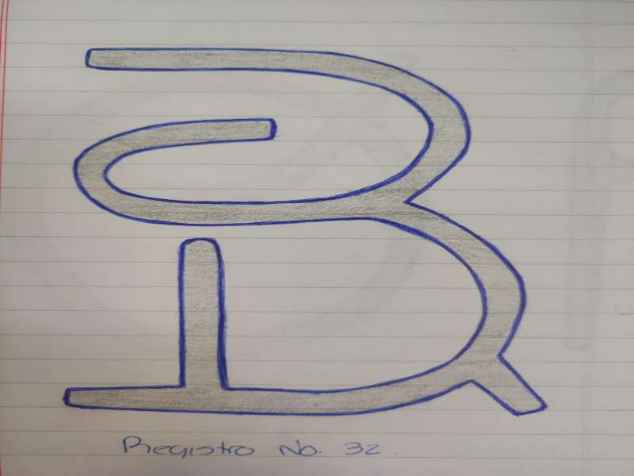 Registro No. 32